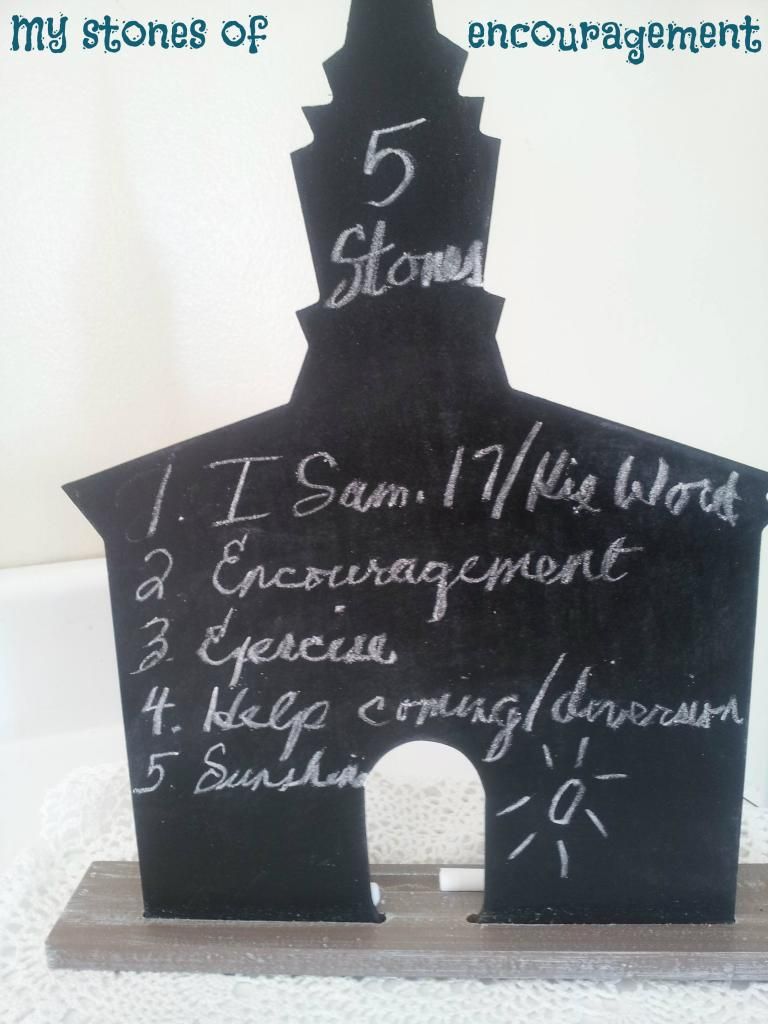 My stones of encouragement
5
Stones
1. I Sam. 17/His Word
2 Encouragement
3 Exercise
4. Help coming/diversion
5 Sunshine